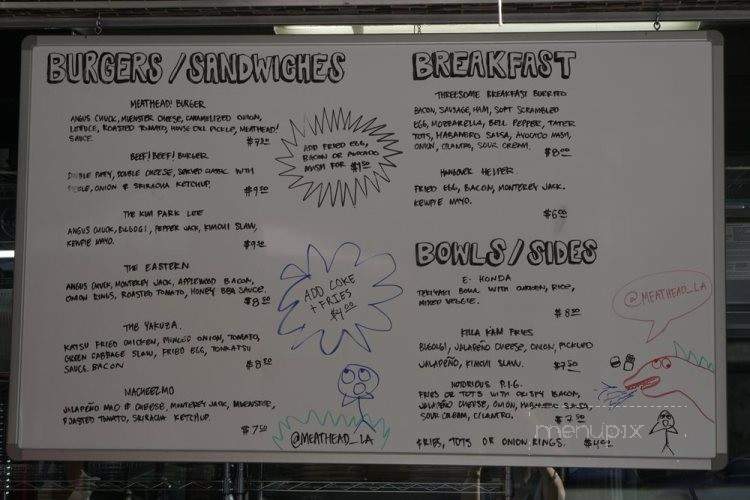 BURGERS/SANDWICHES
MEATHEAD! BURGER
ANGUS CHUCK, MUENSTER CHEESE, CARAMELIZED ONION,
LETTUCE, ROASTED TOMATO, HOUSE DILL PICKLE, MEATHEAD!
SAUCE
BEEF! BEEF! BURGER
DOUBLE PATTY, DOUBLE CHEESE, SERVED CLASSIC WITH
PICKLE, ONION & SRIRACHA KETCHUP.
$9.00
THE KIM PARK LEE
ANGUS CHUCK, BULGOGI, PEPPER JACK, KIMCHI SLAW,
KEWPIE MAYO.
THE EASTERN
ANGUS CHUCK, MONTEREY JACK, APPLEWOOD BACON,
ONION RINGS, ROASTED TOMATO, HONEY BBQ SAUCE.
$8.00
THE YAKUZA.
KATSU FRIED CHICKEN, MINCED ONION, TOMATO,
GREEN CABBAGE SLAW, FRIED EGG, TONKATSU
SAUCE, BACON
$8.00
MACHEEZMO
JALAPEÑO MAC & CHEESE, MONTEREY JACK, MUENSTER,
ROASTED TOMATO, SRIRACHA KETCHUP.
$7.50
ADD FRIED EGG,
BACON OR AVOCADO
MASH FOR $1.00
ADD COKE
+ FRIES
$4.00
@MEATHEAD_LA
BREAKFAST
THREESOME BREAKFAST BURRITO
BACON, SAUSAGE, HAM, SOFT SCRAMBLED
EGG, MOZZARELLA, BELL PEPPER, TATER
TOTS, HABANERO SALSA, AVOCADO MASH,
ONION, CILANTRO, SOUR CREAM.
$8.00
HANGOVER HELPER
FRIED EGG, BACON, MONTEREY JACK.
KEWPIE MAYO.
$6.00
BOWLS/SIDES
E. HONDA
TERIYAKI BOWL WITH CHICKEN, RICE,
MIXED VEGGIE.
$8.00
KILLA KAM FRIES
BULGOGI, JALAPEÑO CHEESE, ONION, PICKLED
JALAPEÑO, KIMCHI SLAW.
$7.50
NOTORIOUS P.I.G.
FRIES OR TOTS WITH CRISPY BACON,
JALAPEÑO CHEESE, ONION, HABANERO SALSA,
SOUR CREAM, CILANTRO.
$7.50
FRIES, TOTS OR ONION RINGS.
@MEATHEAD_LA
menupix